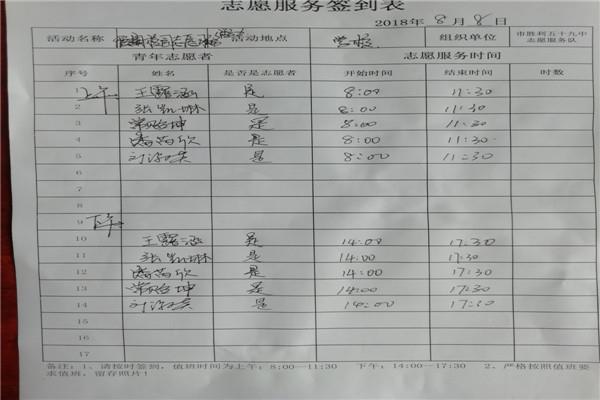 志愿服务签到表
2018年8月8日
活动名称 活动地点 学校 组织单位 市胜利五十九中志愿服务队
青年志愿者 志愿服务时间
序号 姓名 是否是志愿者 开始时间 结束时间 时数
1 上午 王露涵 是 8:00 11:30
2 张凯琳 是 8:00 11:30
3 坤 是 8:00 11:30
4 欣 是 8:00 11:30
5 刘 是 8:00 11:30
6
7
8
9 下午
10 王露涵 是 14:00 17:30
11 张凯琳 是 14:00 17:30
12 欣 是 14:00 17:30
13 坤 是 14:00 17:30
14 刘 是 14:00 17:30
15
16
17
备注:1、请按时签到,值班时间为上午:8:00—11:30 下午:14:00—17:30 2、严格按照值班要
求值班,留存照片!